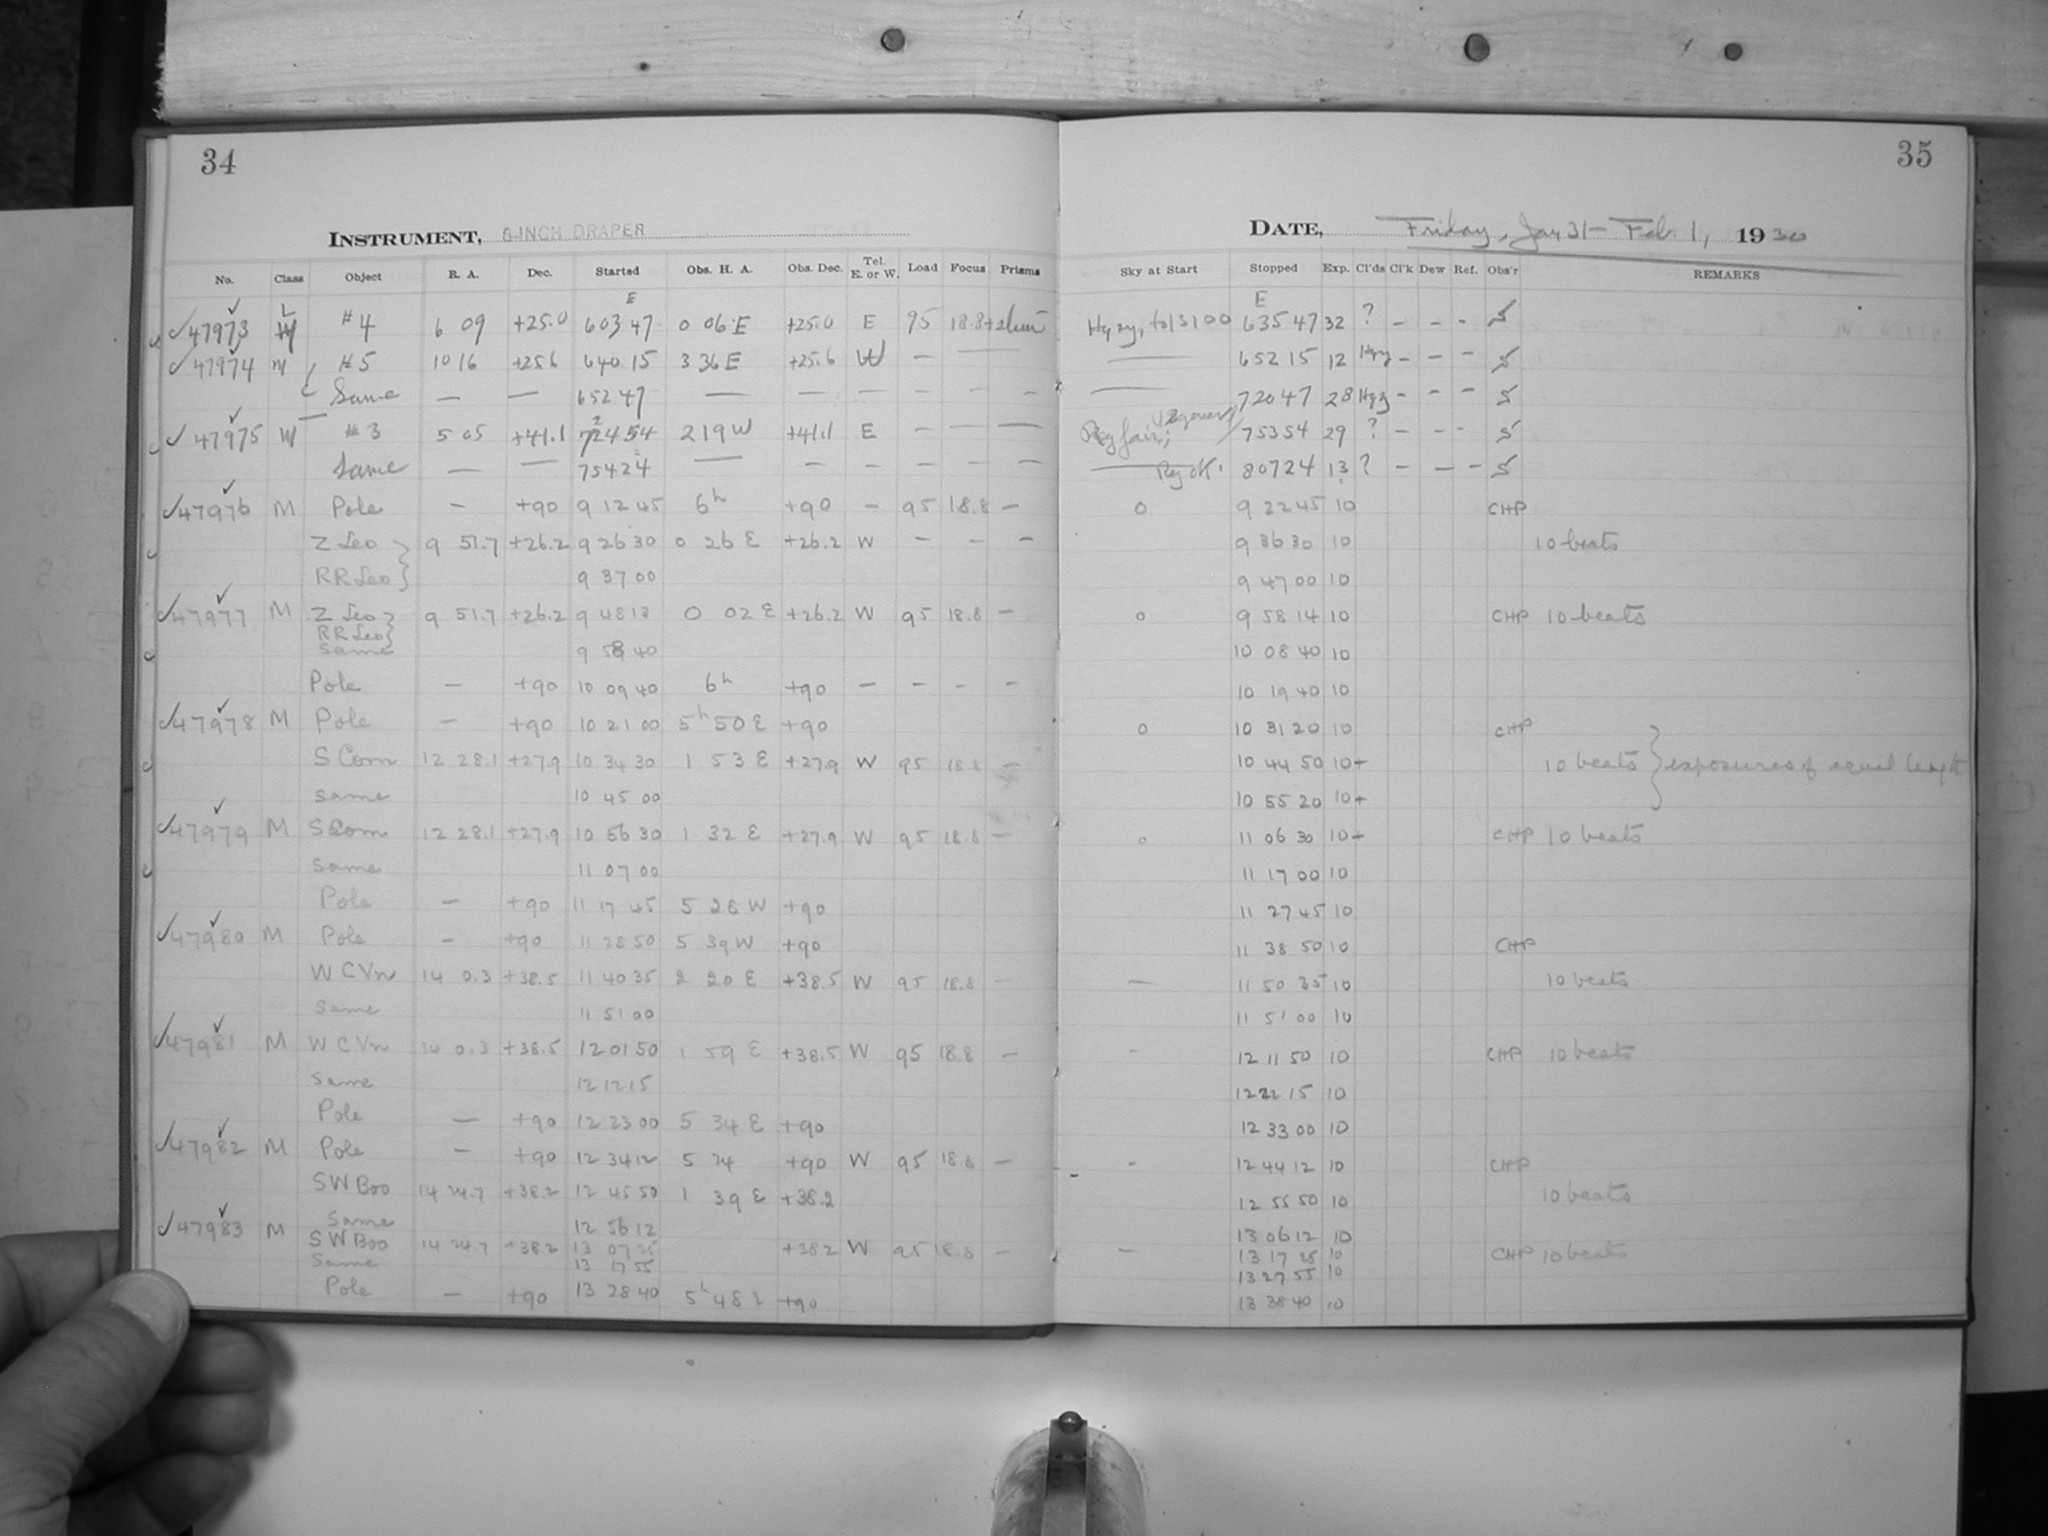 34
35
INSTRUMENT, 8-INCH DRAPER
DATE, Friday, Jan 31 - Feb. 1, 1930
No. Class Object R. A. Dec. Started Obs. H. A. Obs. Dec. Tel. E. or W. Load Focus Prisms Sky at Start Stopped Exp. Cl'ds Cl'k Dew Ref. Obs'r REMARKS
E E
✓47973 L #4 6 09 +25.0 603 47 0 06 E +25.0 E 95 18.8 635 47 32 ? – – –
✓47974 #5 10 16 +25.6 640 15 3 36 E +25.6 W — — 652 15 12 – – –
Same — — 652 47 — — — — — — 720 47 28 – – –
✓47975 #3 5 05 +41.1 724 54 2 19 W +41.1 E – – — 753 54 29 ? – – –
Same — — 754 24 — – – – – – 807 24 13 ? – – –
✓47976 M Pole – +90 9 12 45 6h +90 – 95 18.8 – 0 9 22 45 10 CHP
Z Leo 9 51.7 +26.2 9 26 30 0 26 E +26.2 W – – – 9 36 30 10 10 beats
RR Leo 9 37 00 9 47 00 10
✓47977 M Z Leo 9 51.7 +26.2 9 48 13 0 02 E +26.2 W 95 18.8 – 0 9 58 14 10 CHP 10 beats
RR Leo
Same 9 58 40 10 08 40 10
Pole – +90 10 09 40 6h +90 – – – – 10 19 40 10
✓47978 M Pole – +90 10 21 00 5h 50 E +90 0 10 31 20 10 CHP
S Com 12 28.1 +27.9 10 34 30 1 53 E +27.9 W 95 18.8 – 10 44 50 10+ 10 beats } exposures of equal length
Same 10 45 00 10 55 20 10+
✓47979 M S Com 12 28.1 +27.9 10 56 30 1 32 E +27.9 W 95 18.8 – 0 11 06 30 10+ CHP 10 beats
Same 11 07 00 11 17 00 10
Pole – +90 11 17 45 5 28 W +90 11 27 45 10
✓47980 M Pole – +90 11 28 50 5 39 W +90 11 38 50 10 CHP
W CVn 14 0.3 +38.5 11 40 35 2 20 E +38.5 W 95 18.8 – — 11 50 35 10 10 beats
Same 11 51 00 11 51 00 10
✓47981 M W CVn 14 0.3 +38.5 12 01 50 1 59 E +38.5 W 95 18.8 – – 12 11 50 10 CHP 10 beats
Same 12 12 15 12 22 15 10
Pole — +90 12 23 00 5 34 E +90 12 33 00 10
✓47982 M Pole – +90 12 34 12 5 24 +90 W 95 18.8 – - 12 44 12 10 CHP
SW Boo 14 24.7 +38.2 12 45 50 1 39 E +38.2 12 55 50 10 10 beats
Same 12 56 12 13 06 12 10
✓47983 M SW Boo 14 24.7 +38.2 13 07 25 +38.2 W 95 18.8 – – 13 17 25 10 CHP 10 beats
Same 13 17 55 13 27 55 10
Pole – +90 13 28 40 5h 48 +90 13 38 40 10